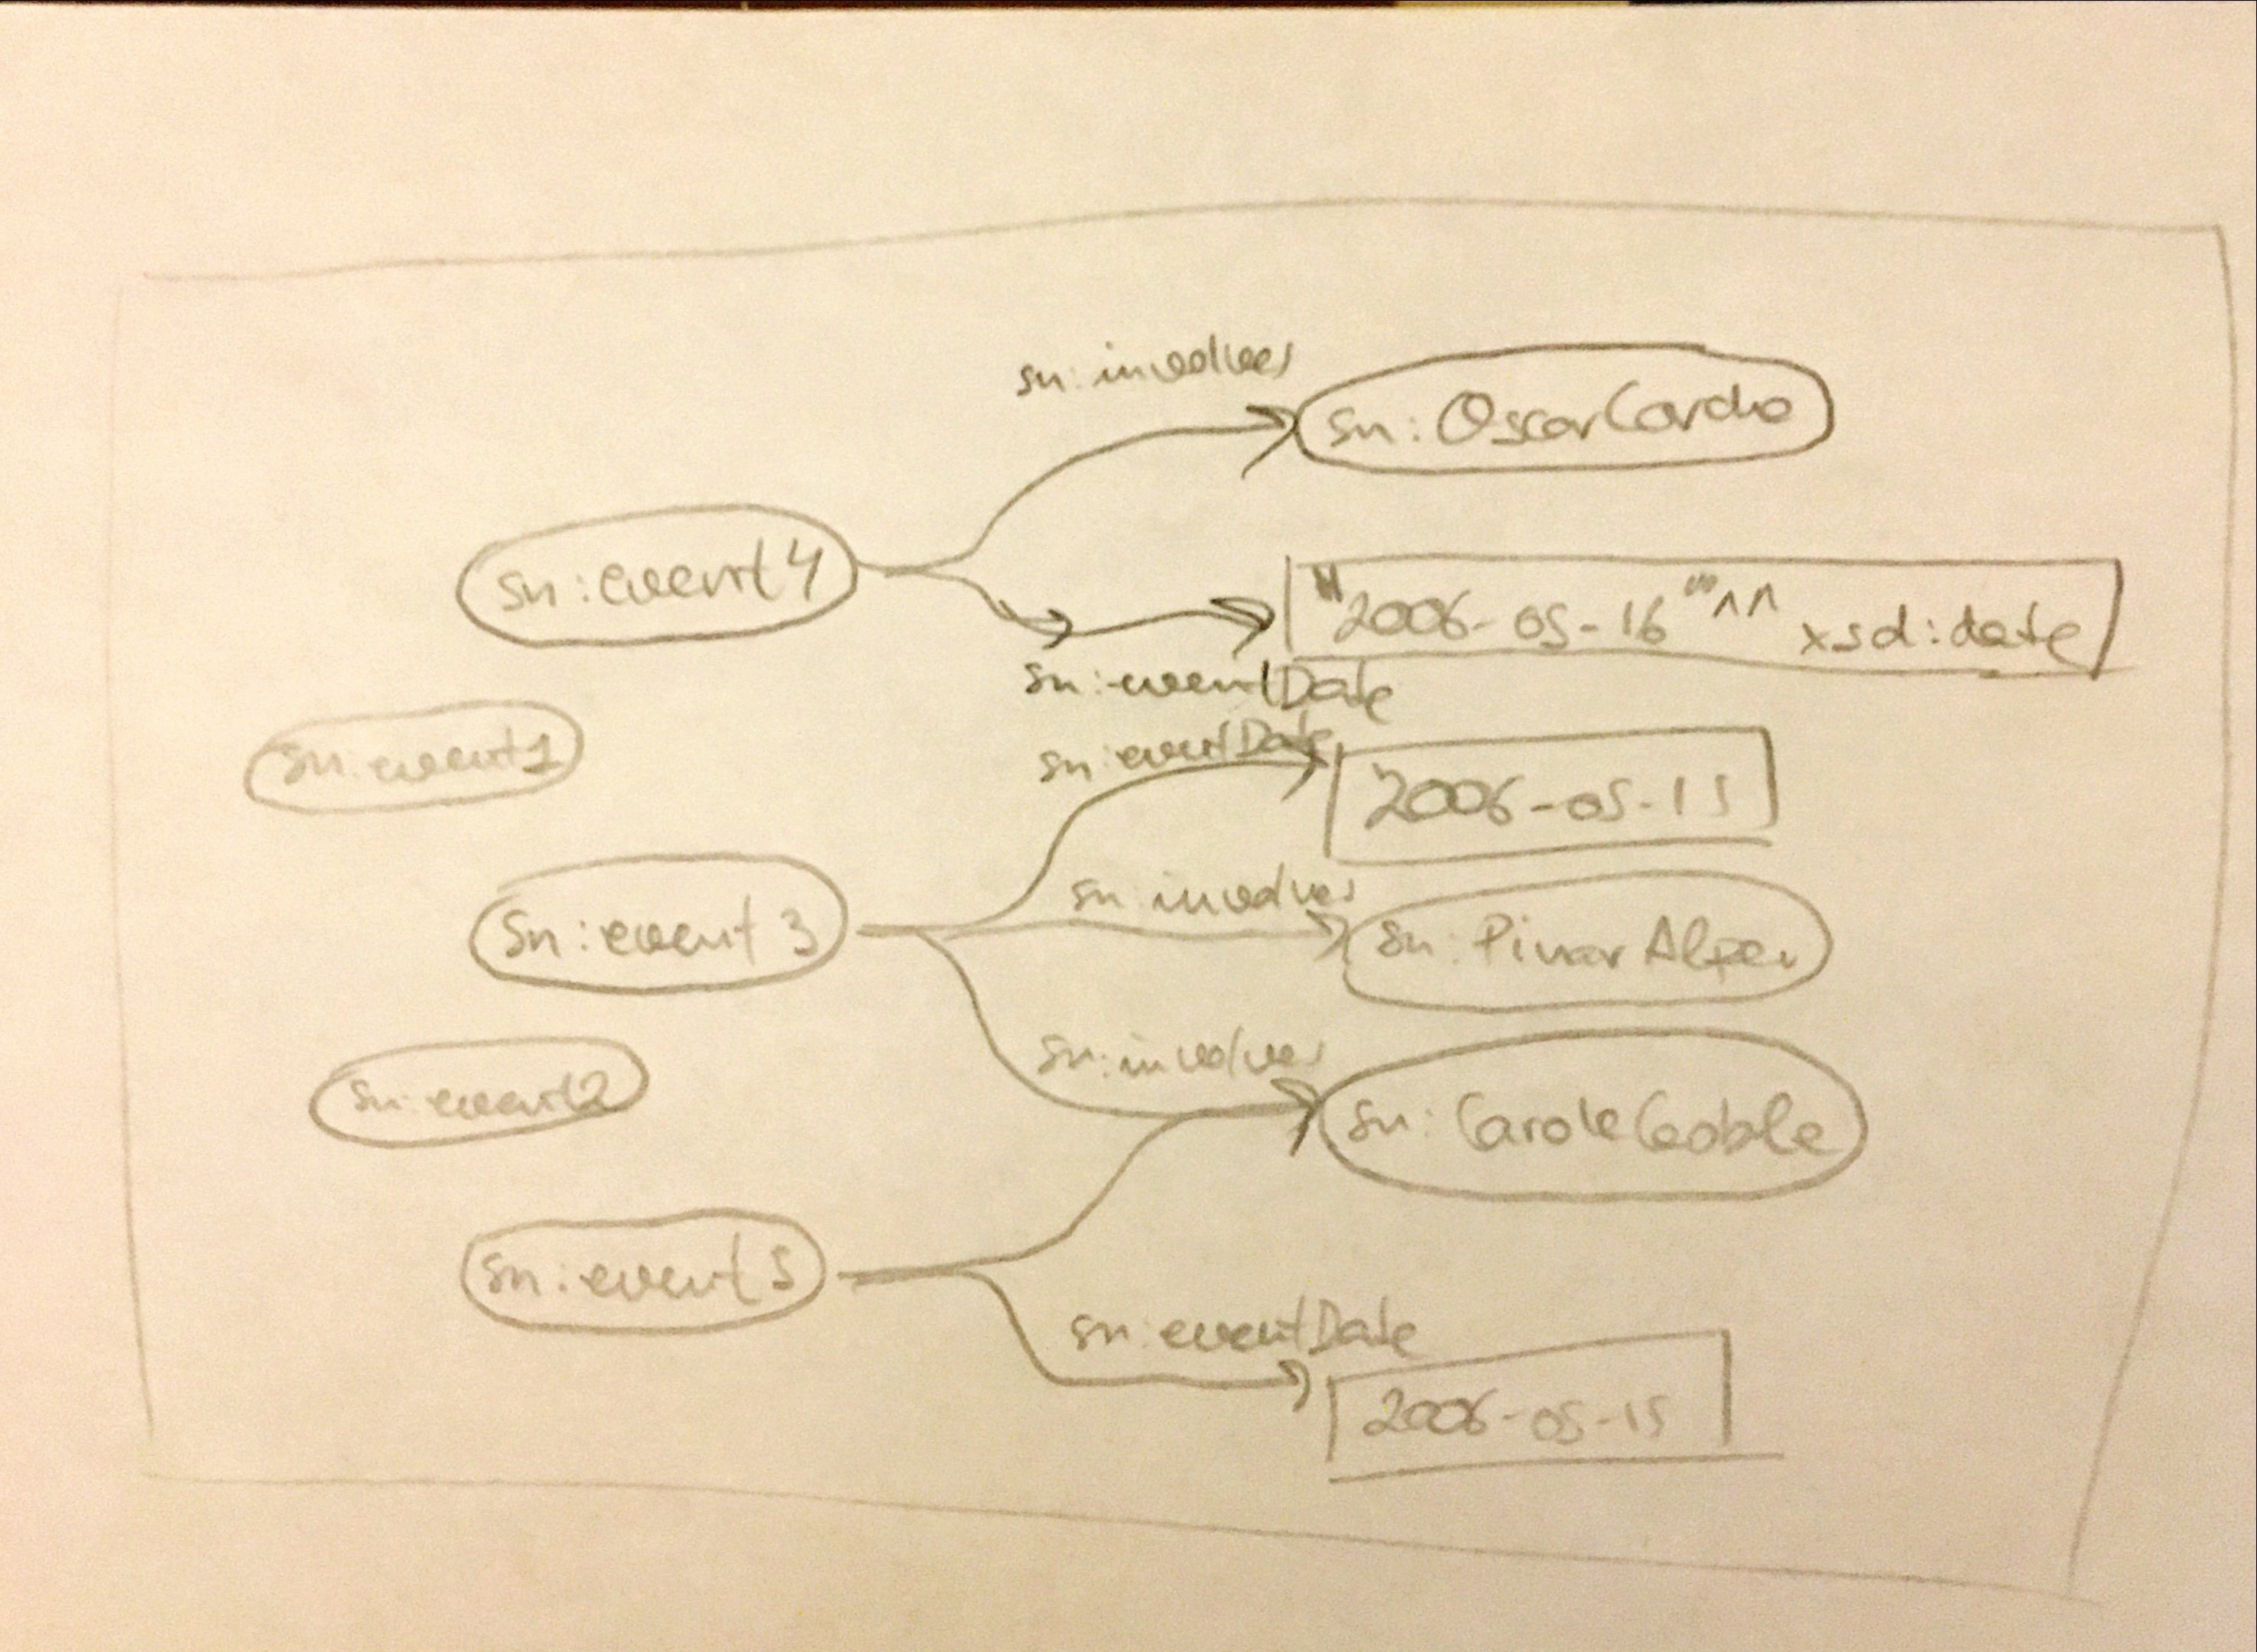 sn:involves
sn:OscarCorcho
sn:event4
"2006-05-16"^^xsd:date
sn:eventDate
sn:event1
sn:eventDate
"2006-05-15
sn:involves
sn:event3
sn:PinarAlper
sn:involves
sn:event2
sn:CaroleGoble
sn:event5
sn:eventDate
2006-05-15